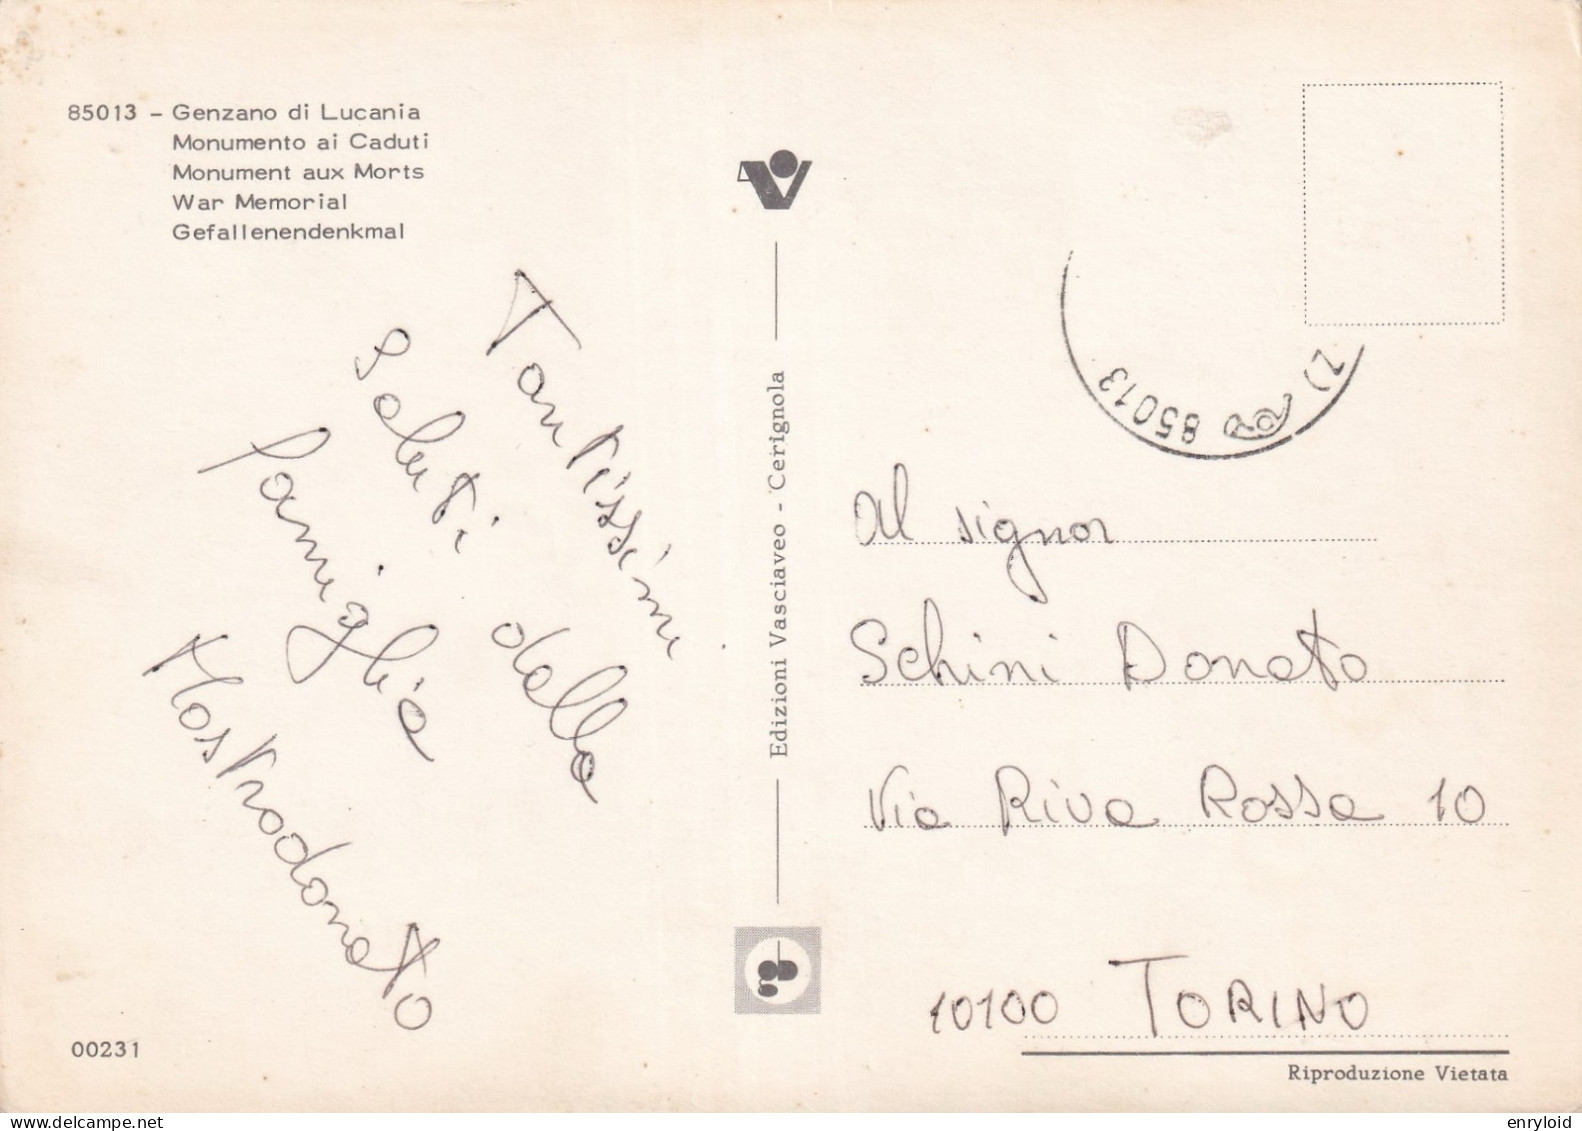 85013 – Genzano di Lucania
Monumento ai Caduti
Monument aux Morts
War Memorial
Gefallenendenkmal
Tantissimi
saluti dalla
famiglia
Mastrodonato
00231
Edizioni Vasciaveo - Cerignola
Z) 85013
Al signor
Schini Donato
Via Riva Rossa 10
10100 TORINO
Riproduzione Vietata
enryloid